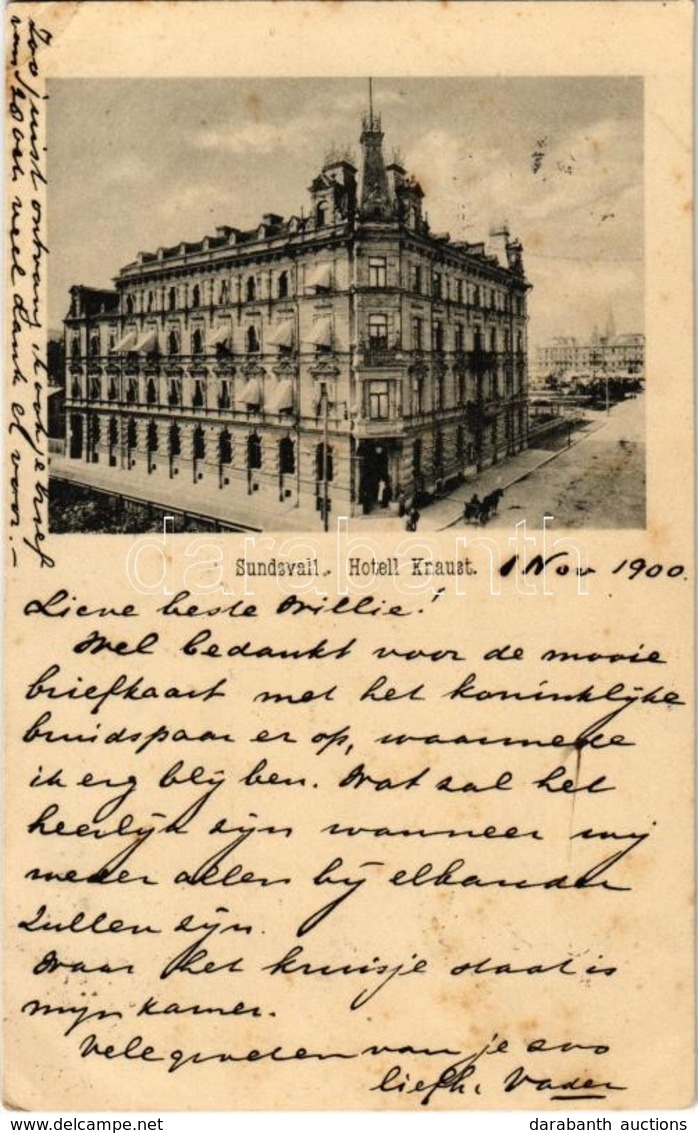 Zoo juist ontvang ik ook je brief
van 28 Oct. veel dank er voor. –
Sundsvall. Hotell Knaust.
1 Nov 1900.
Lieve beste Willie!
Wel bedankt voor de mooie
briefkaart met het koninklijke
bruidspaar er op, waarmede
ik erg blij ben. Wat zal het
heerlijk zijn wanneer wij
weder allen bij elkander
zullen zijn.
Waar het kruisje staat is
mijn kamer.
Vele groeten van je zoo
liefh. Vader
darabanth
darabanth auctions